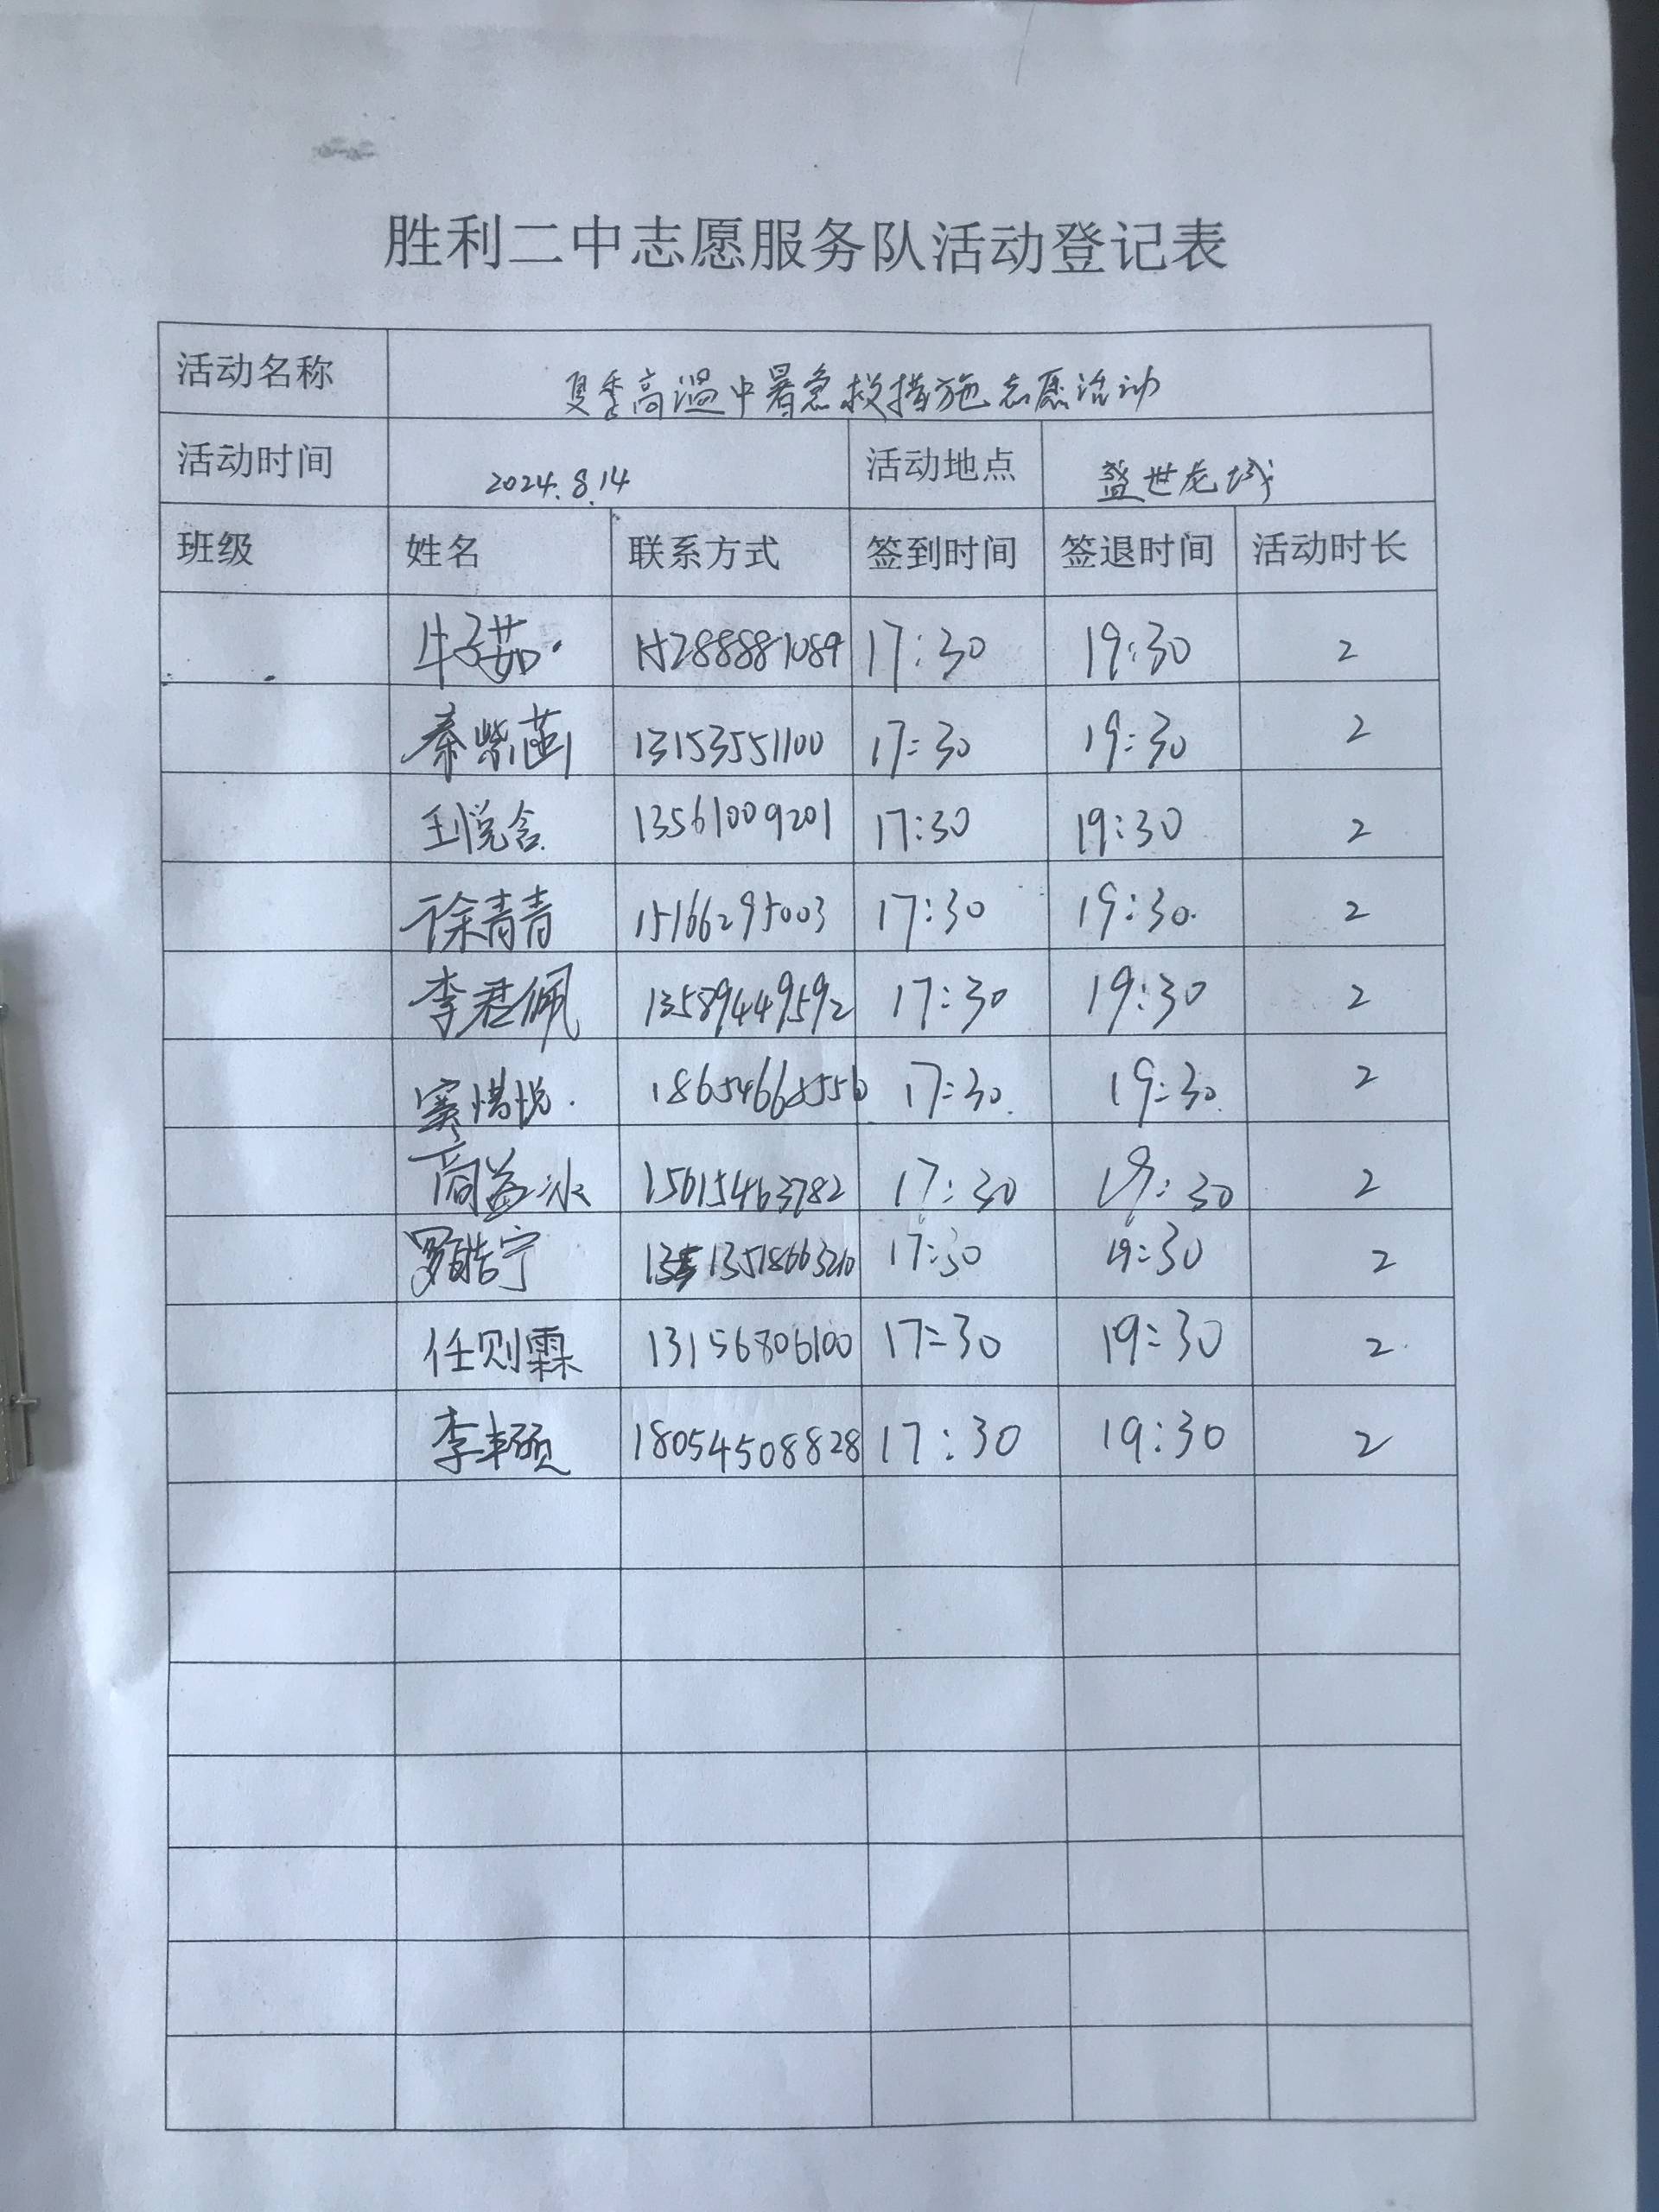 胜利二中志愿服务队活动登记表
活动名称 夏季高温中暑急救措施志愿活动
活动时间 2024.8.14 活动地点 盛世龙城
班级 姓名 联系方式 签到时间 签退时间 活动时长
牛子茹 15288881089 17:30 19:30 2
秦紫菡 13153551100 17:30 19:30 2
王悦含 13561009201 17:30 19:30 2
徐青青 15166295003 17:30 19:30 2
李君佩 13589449592 17:30 19:30 2
窦惜悦 17:30 19:30 2
商益冰 15615463782 17:30 19:30 2
罗皓宁 17:30 19:30 2
任则霖 13156806100 17:30 19:30 2
李轩硕 18054508828 17:30 19:30 2